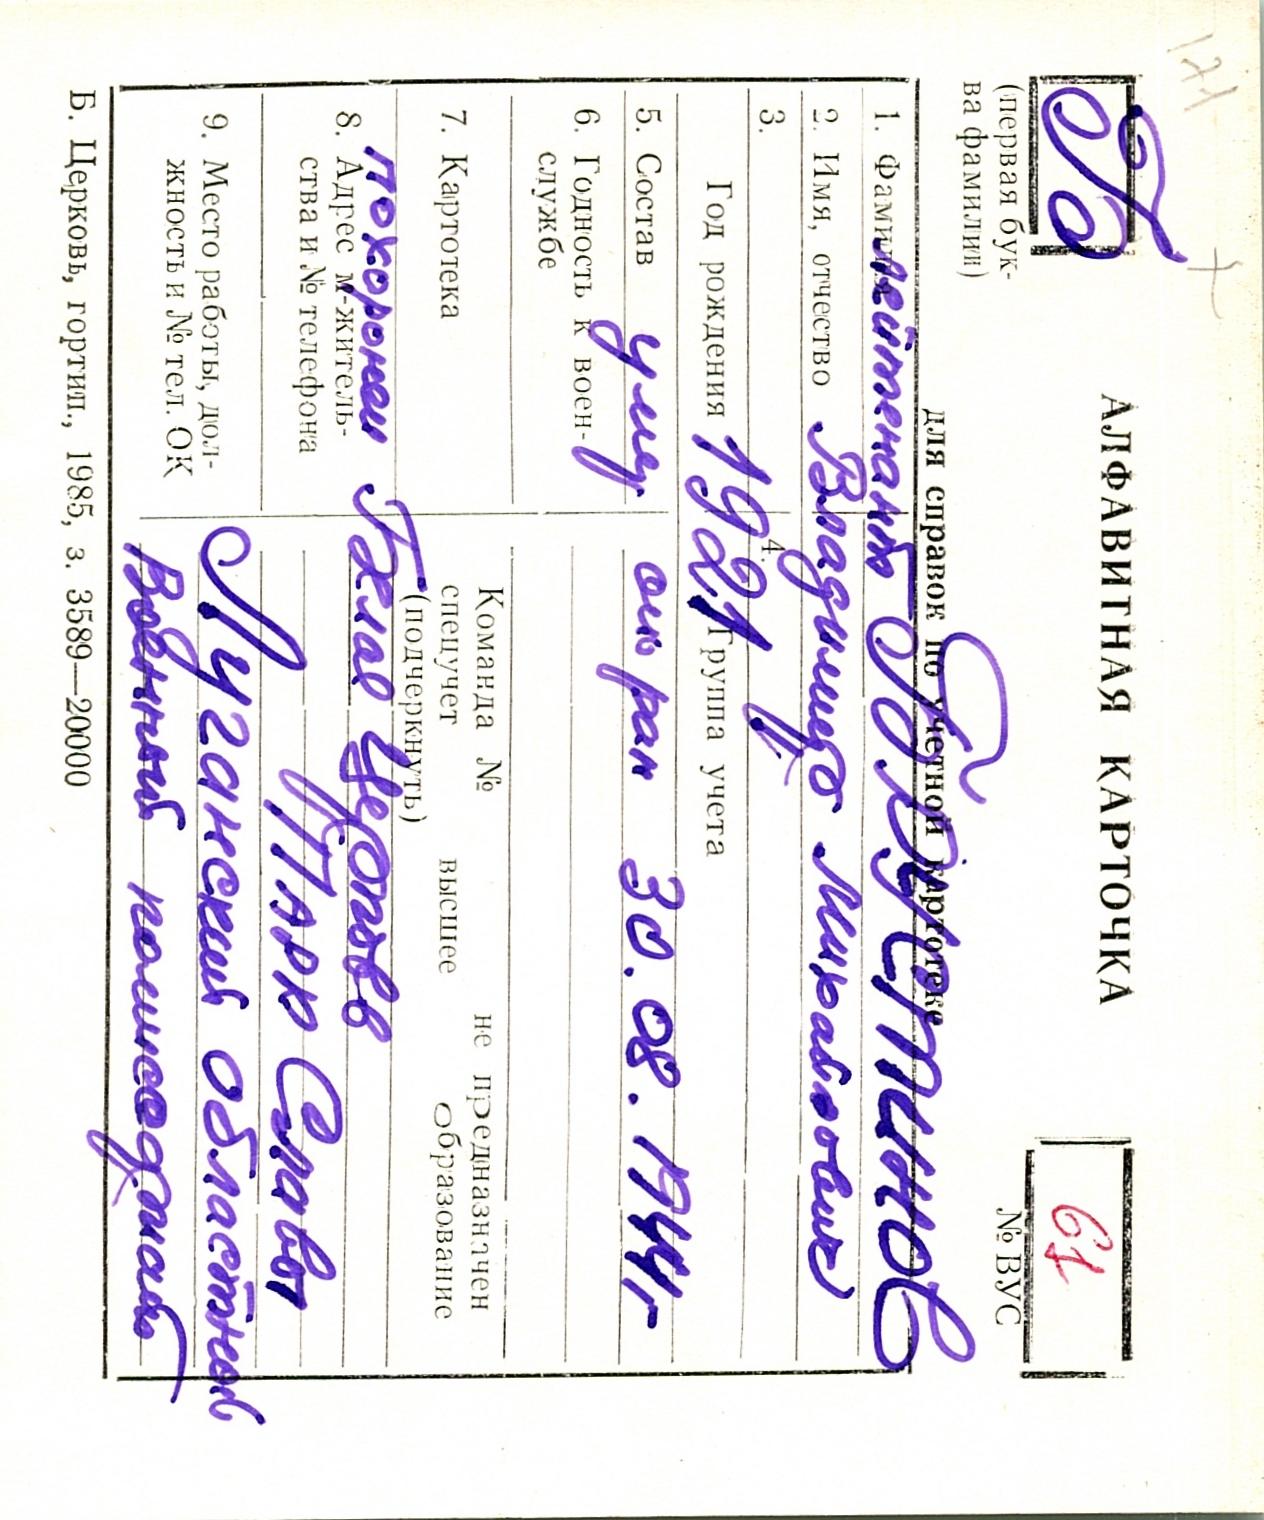 АЛФАВИТНАЯ КАРТОЧКА
для справок по учетной картотеке
(первая бук-
ва фамилии)
61
№ ВУС
1. Фамилия лейтенант
2. Имя, отчество Владимир
3.
Год рождения 1921
4. Группа учета
5. Состав умер от ран 30.08.1944г
6. Годность к воен-
службе
7. Картотека
Команда № не предназначен
спецучет высшее образование
(подчеркнуть)
8. Адрес м-житель-
ства и № телефона
похоронен Белая Церковь
Парк Славы
9. Место работы, дол-
жность и № тел. ОК
Луганский областной
Военный комиссариат
Б. Церковь, гортип., 1985, з. 3589—20000